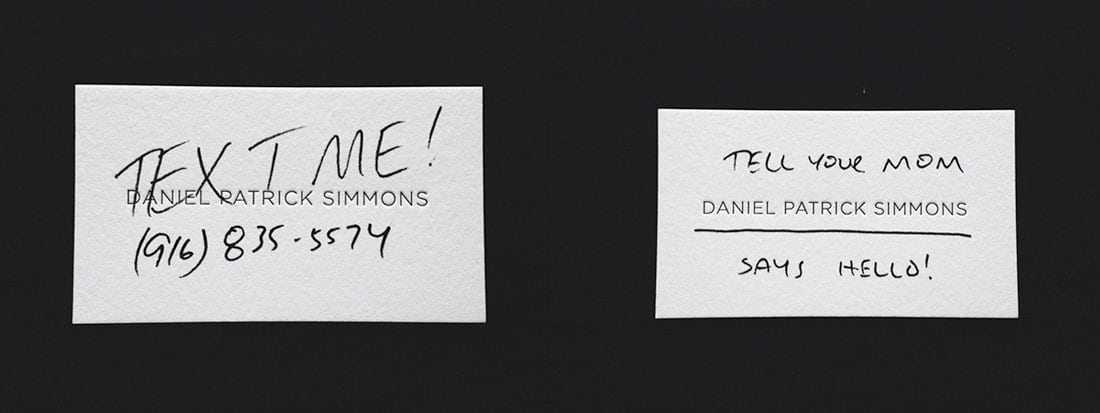 TEXT ME!
DANIEL PATRICK SIMMONS
(916) 835-5574
TELL YOUR MOM
DANIEL PATRICK SIMMONS
SAYS HELLO!